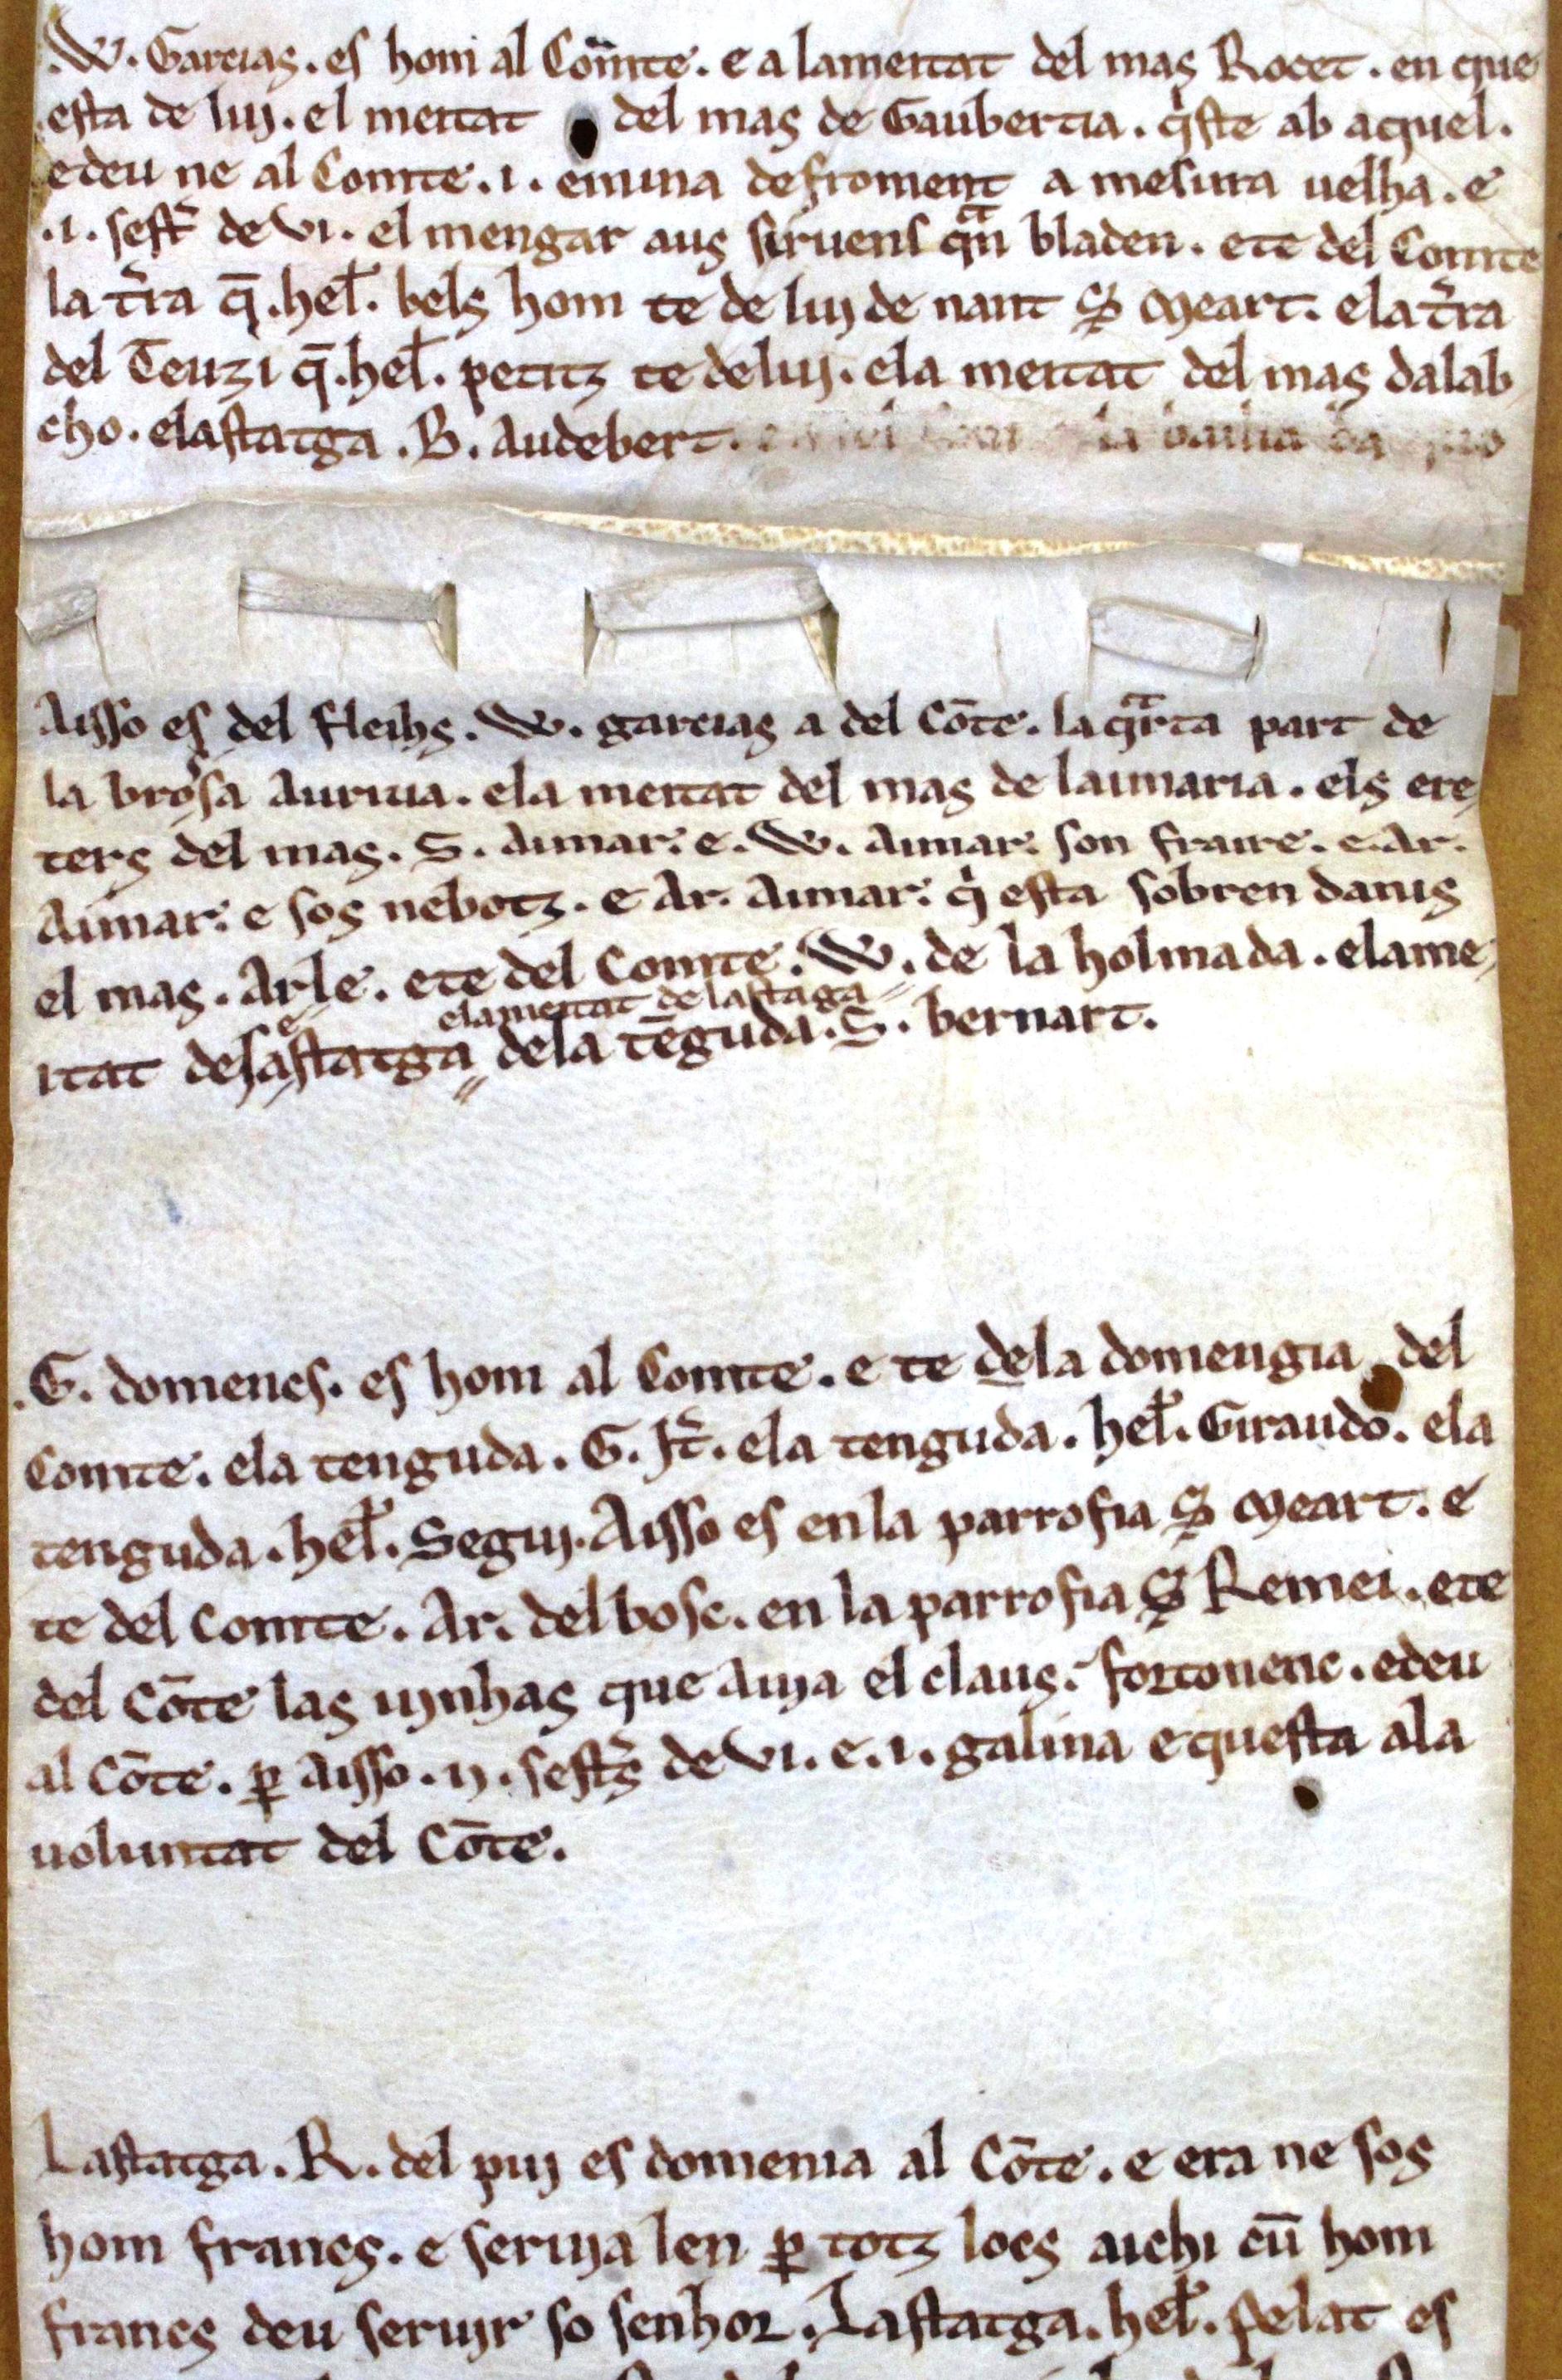 .W. Garcias. es hom al Com̄te. e a la meitat del mas Rocet. en que
esta de luj. el meitat del mas de Gaubertia. q̍ste ab aquel.
e deu ne al Comte. i. emina de froment a mesura uelha. e
.i. sest̍ de vi. el mengar aus siruens qᵃn bladen. e te del Comte
la t̍ra q̄. hel̄. bels hom te de luj de nant S̄ Meart. e la t̍ra
del Teuzi q̄. hel̄. petitz te de luj. e la meitat del mas dalab
cho. e lastatga. B. Audebert. la bailia
Aisso es del fleihs. W. garcias a del Cōte. la qᵃrta part de
la brossa auriua. e la meitat del mas de laimaria. els ere
ters del mas. S. aimar. e. W. aimar. son fraire. e. Ar.
Aimar. e sos nebotz. e Ar. aimar. q̍ esta sobren danis
el mas. Arle. e te del Comte. W. de la holmada. e lame
itat de sa estatga
e la meitat de lastaga
de la tēguda. S. bernart.
.G. domencs. es hom al Comte. e te de la domengia del
Comte. e la tenguda. G. It̍. e la tenguda. hel̄. Giraudo. e la
tenguda. hel̄. Seguj. Aisso es en la parrofia S̄ Meart. e
te del Comte. Ar. del bosc. en la parrofia S̄ Remei. e te
del Cōte las uinhas que auja el claus. fortonenc. e deu
al Cōte. ꝑ aisso. ij. sest̍s de vi. e. i. galina e questa a la
uoluntat del Cōte.
Lastatga. R. del puj es domenia al Cōte. e era ne sos
hom francs. e seruja len ꝑ totz locs aichi cū hom
francs deu serujr so senhor. Lastatga. hel̄. pelat es